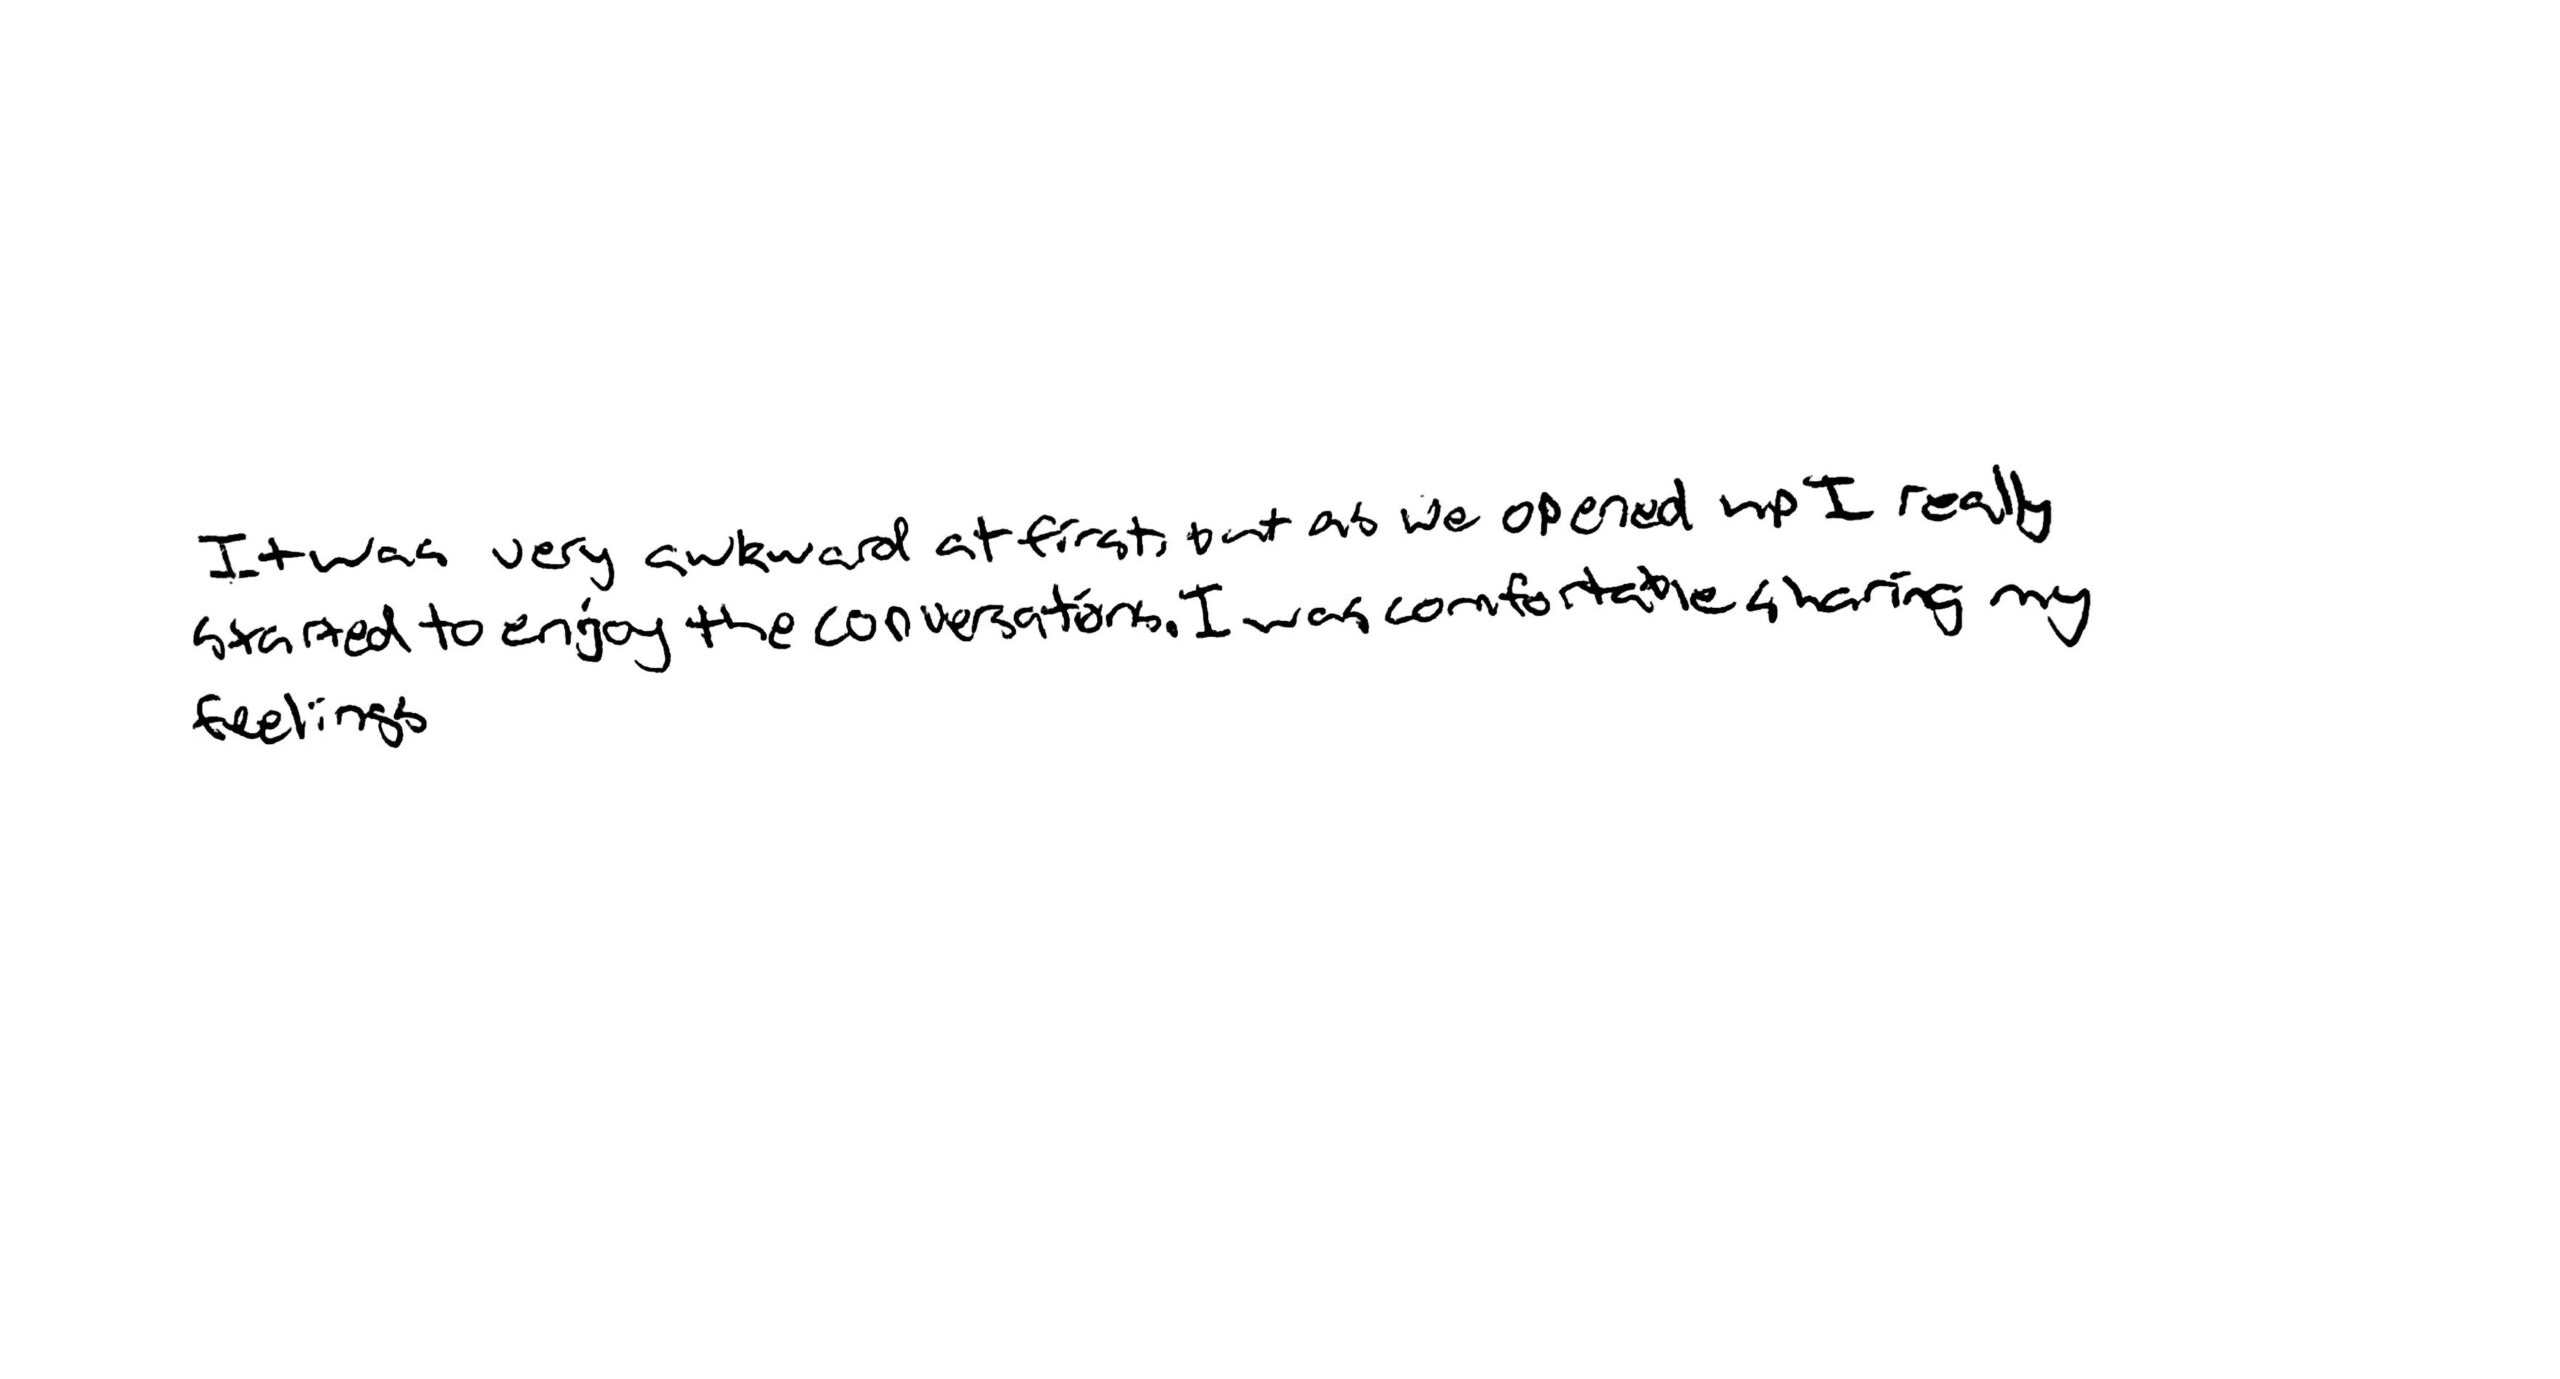 It was very awkward at first, but as we opened up I really
started to enjoy the conversations. I was comfortable sharing my
feelings